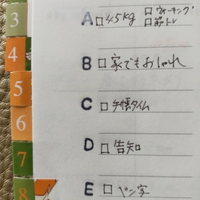 3
A □ 45kg □ ウォーキング
□ 筋トレ
4
B □ 家でもおしゃれ
5
C □ 手帳タイム
6
7
D □ 告知
8
E □ ペン字